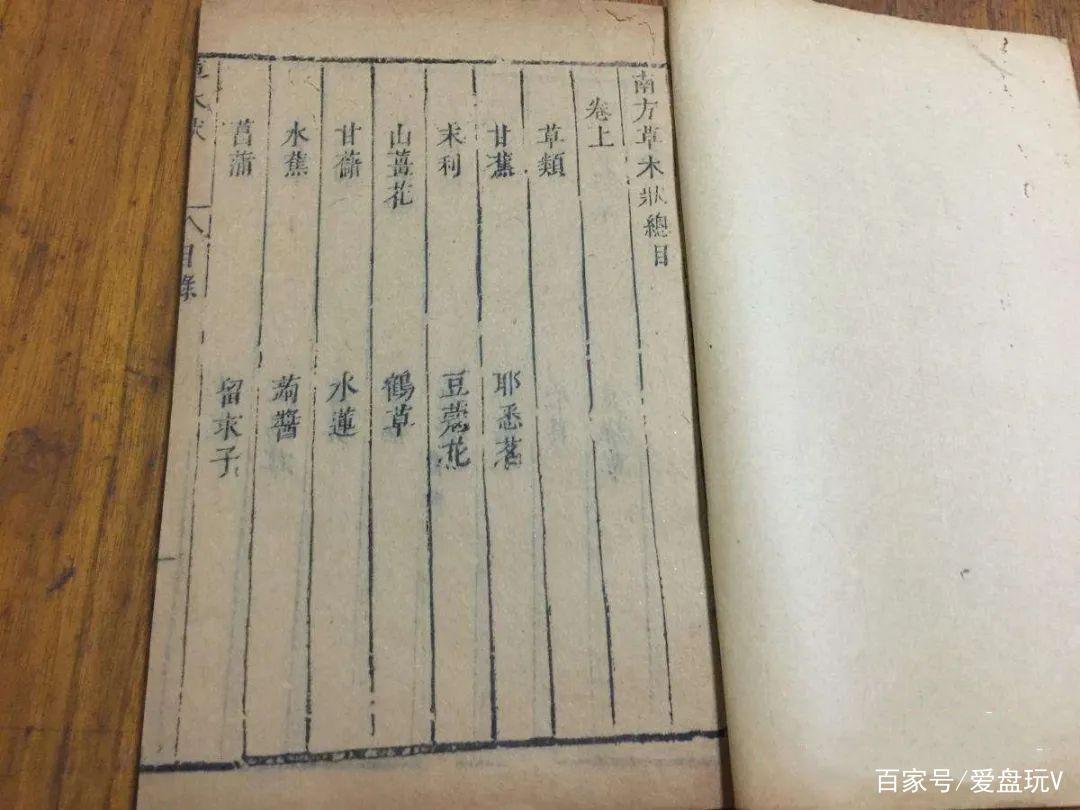 南方草木狀總目
卷上
草類
甘蕉 耶悉茗
末利 豆蔻花
山薑花 鶴草
甘藷 水蓮
水蕉 蒟醬
菖蒲 留求子
草木狀 目錄
百家号/爱盘玩V